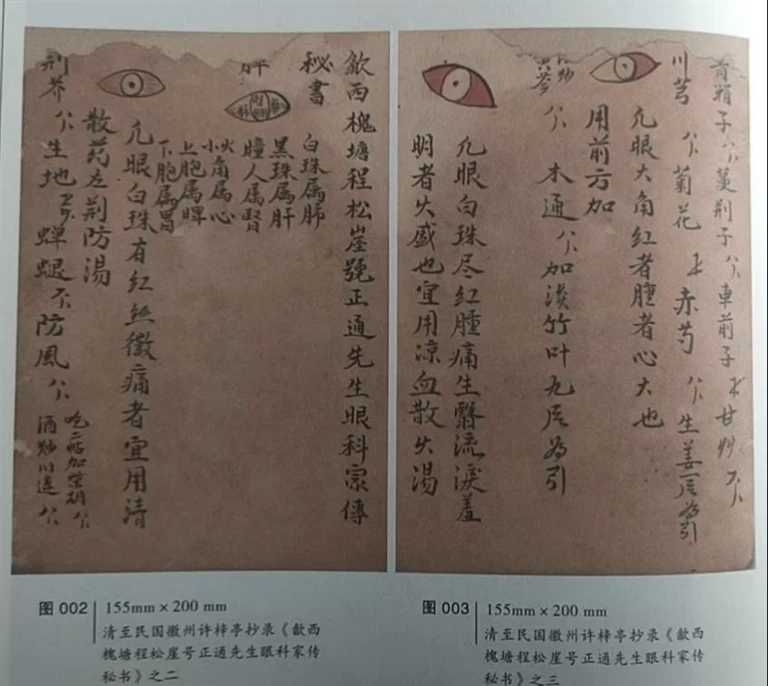 歙西槐塘程松崖號正通先生眼科家傳
秘書
白珠属肺
黑珠属肝
瞳人属腎
小角属心
上胞属脾
下胞属胃
凡眼白珠有红丝微痛者宜用清
散药左荆防湯
荆芥 生地 蝉蜕 防風
吃二帖加柴胡
酒炒川连
图 002
155mm × 200 mm
清至民国徽州许梓亭抄录《歙西
槐塘程松崖号正通先生眼科家传
秘书》之二
青葙子 蔓荆子 車前子 甘艸
川芎 菊花 赤芍 生姜 為引
凡眼大角红者腫者心火也
用前方加
木通 加淡竹叶九片為引
凡眼白珠尽红腫痛生翳流淚羞
明者火盛也宜用凉血散火湯
图 003
155mm × 200 mm
清至民国徽州许梓亭抄录《歙西
槐塘程松崖号正通先生眼科家传
秘书》之三